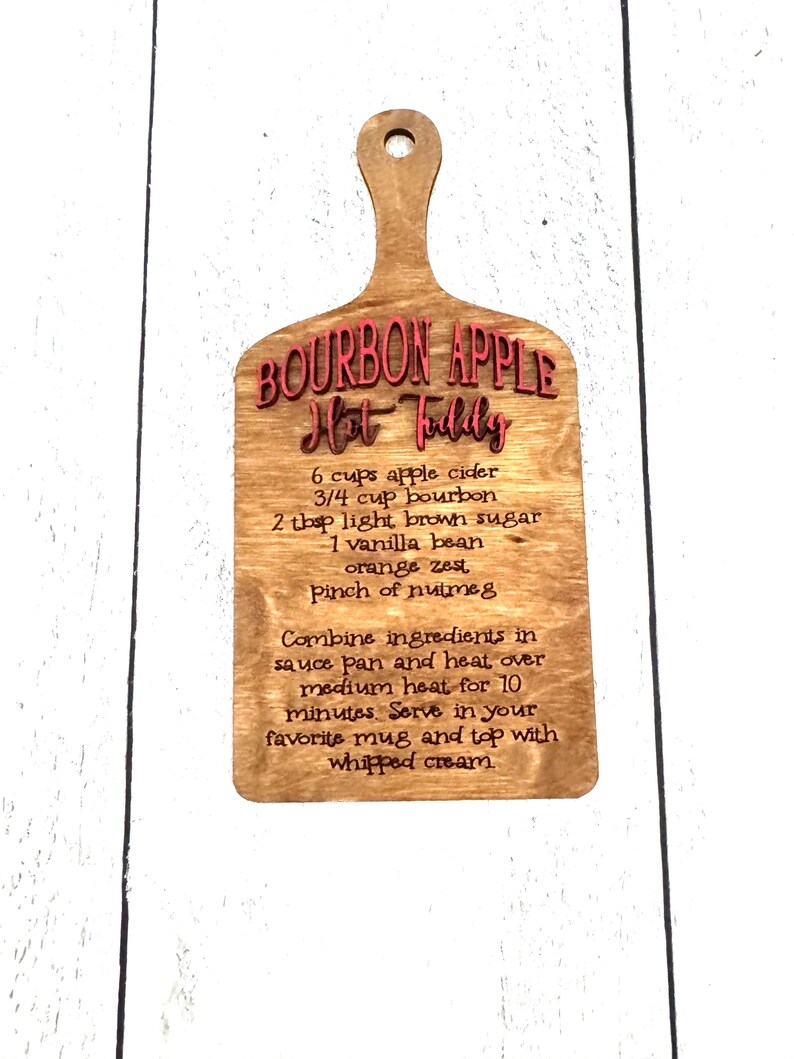 BOURBON APPLE
Hot Toddy
6 cups apple cider
3/4 cup bourbon
2 tbsp light brown sugar
1 vanilla bean
orange zest
pinch of nutmeg
Combine ingredients in
sauce pan and heat over
medium heat for 10
minutes. Serve in your
favorite mug and top with
whipped cream.